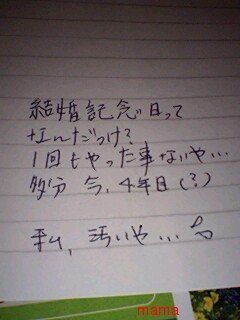 結婚記念日って
なんだっけ?
1回もやった事ないや…
多分 今、4年目(?)
私、汚いや…
mama